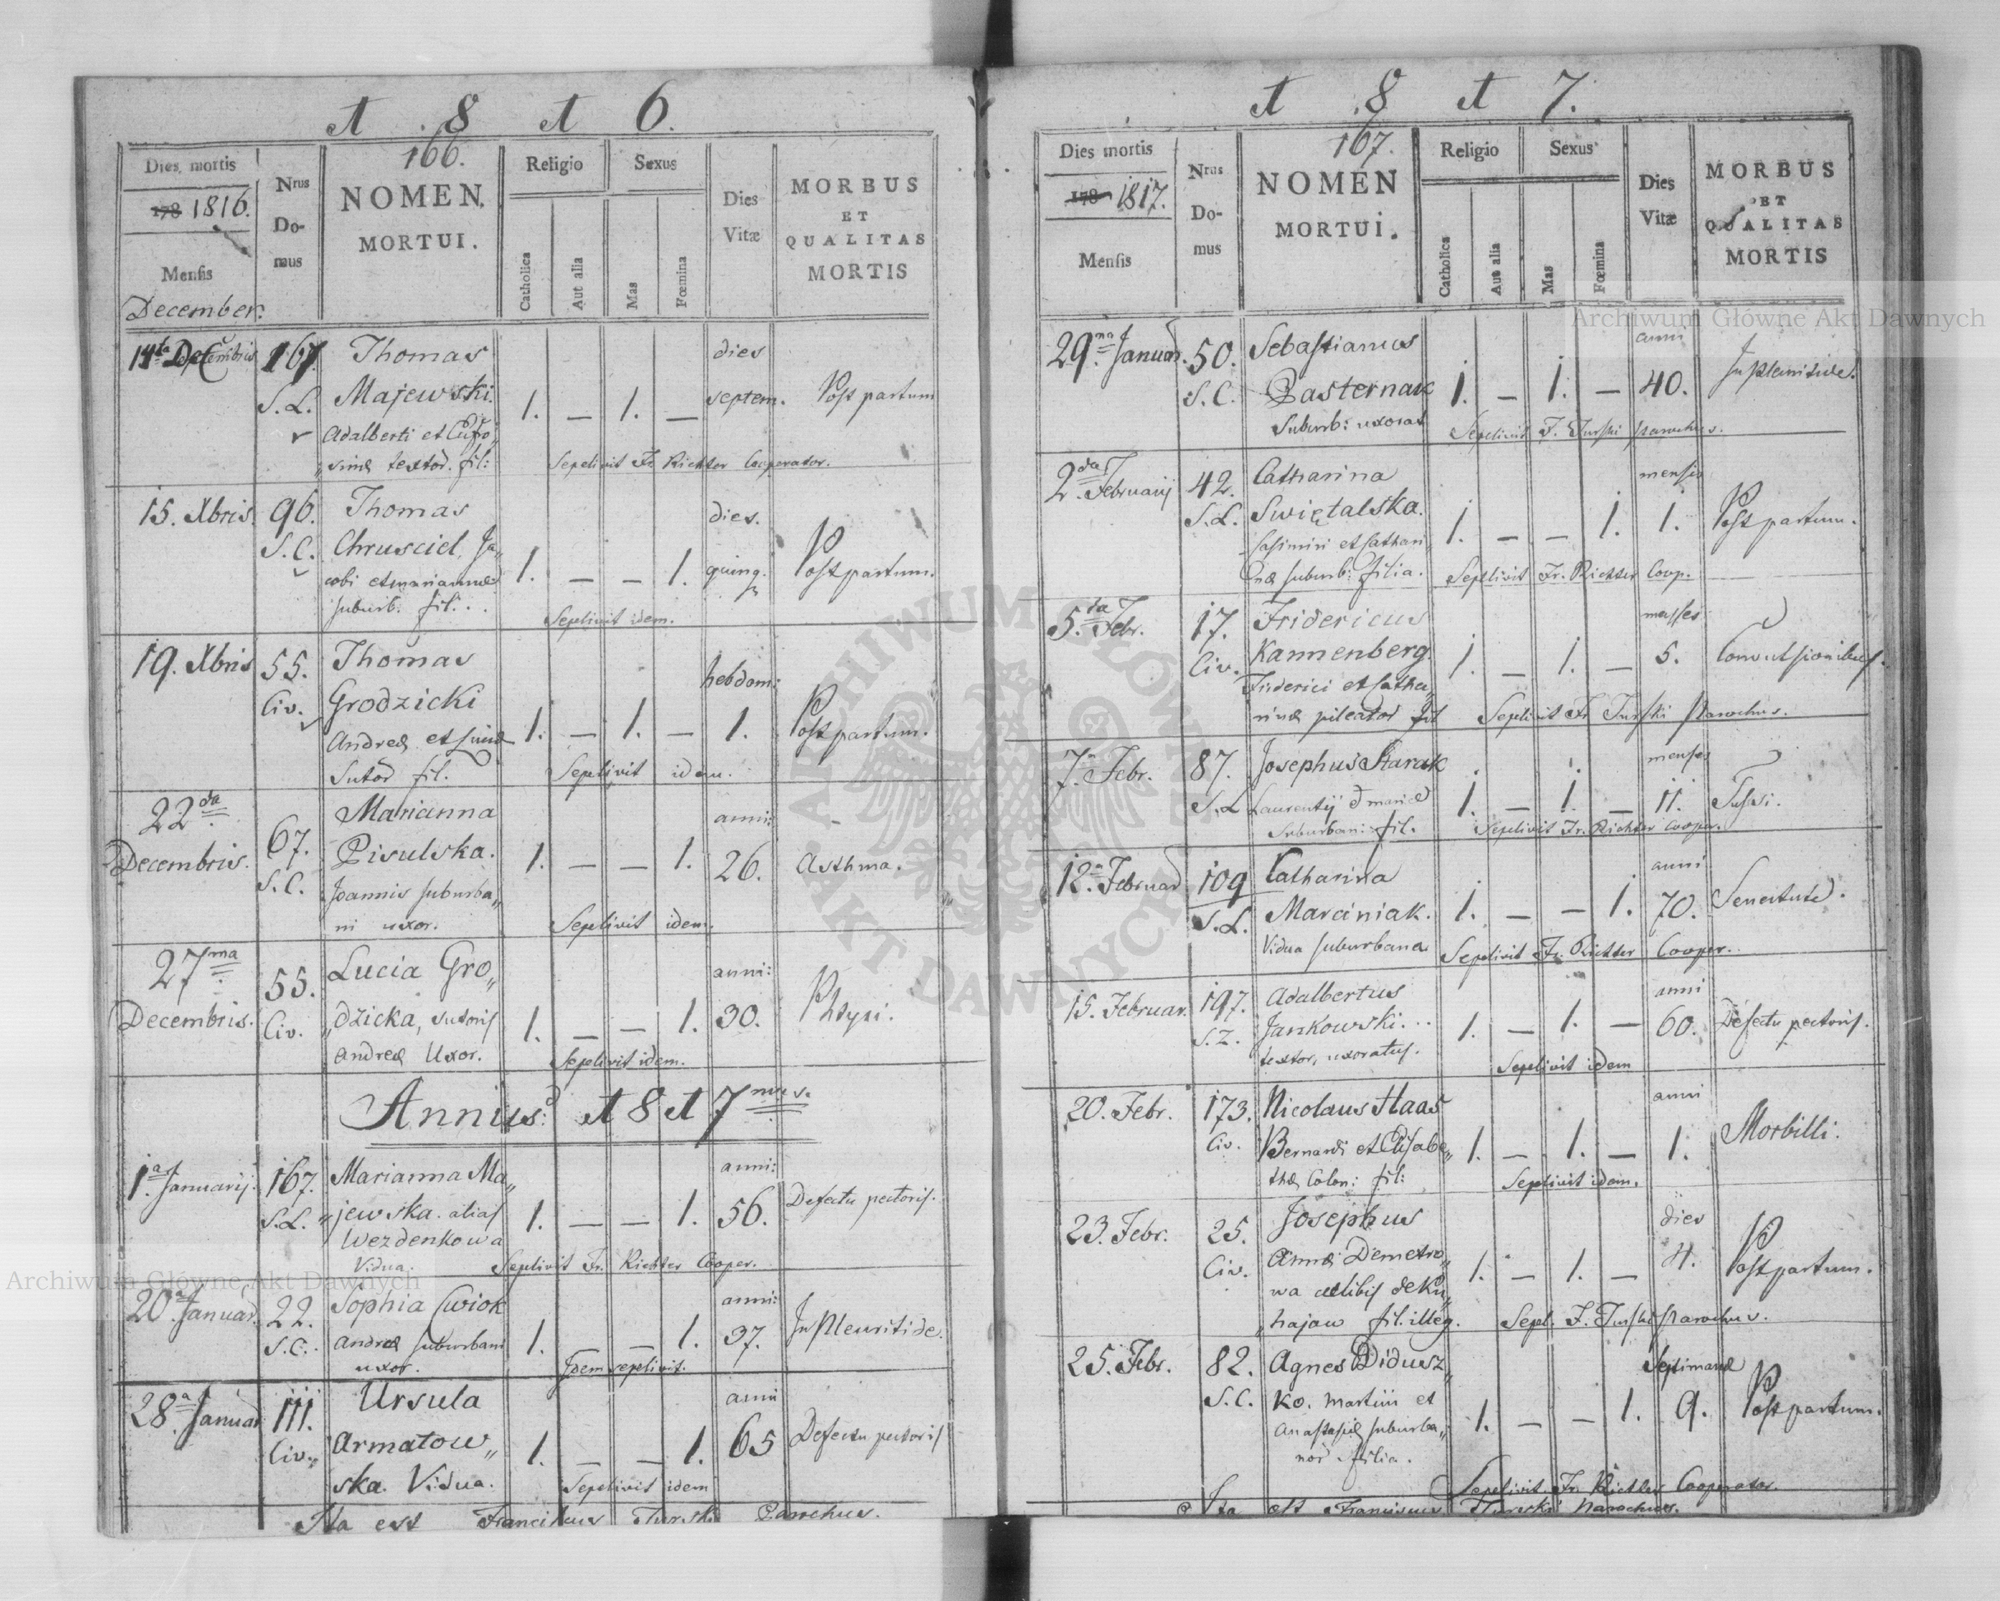 1 8 1 6.
166.
Dies mortis
178 1816.
Mensis
December.
Nrus
Do-
mus
NOMEN
MORTUI.
Religio
Catholica
Aut alia
Sexus
Mas
Fœmina
Dies
Vitæ
MORBUS
ET
QUALITAS
MORTIS
14ta Decembris 167. Thomas dies
S. L. Majewski 1. — 1. — septem. Post partum
Adalberti et Eufro„
„sinæ textor. fil: Sepelivit Fr. Richter Cooperator.
15. Xbris. 96. Thomas dies.
S. C. Chrusciel, Ja„ 1. — — 1. quinq. Post partum.
cobi et mariannæ
suburb. fil: . . Sepelivit idem.
19. Xbris 55. Thomas hebdom:
Civ. Grodzicki 1. — 1. — 1. Post partum.
Andreæ et Luciæ
Sutor fil. Sepelivit idem.
22da Marianna anni:
Decembris. 67. Pisulska. 1. — — 1. 26. Asthma.
S. C. Joannis suburba„
ni uxor. Sepelivit idem.
27ma Lucia Gro„ anni:
55. „dzicka, sutoris 1. — — 1. 30.
Decembris. Civ. Andreæ Uxor. Sepelivit idem.
1817
1a Januarij. 167. Marianna Ma„ anni:
S. L. „jewska alias 1. — — 1. 56. Defectu pectoris.
Wezdenkowa
Vidua. Sepelivit Fr. Richter Cooper.
20a Januar. 22. Sophia Cwiok anni:
S. C. Andreæ suburbani 1. — — 1. 37. In Pleuritide.
uxor. Idem sepelivit.
28a Januar. 111. Ursula anni
Civ. Armatow„ 1. — — 1. 65 Defectu pectoris
ska. Vidua. Sepelivit idem
Ita est Franciscus Turski Parochus.
1 8 1 7.
167.
Dies mortis
178 1817.
Mensis
Nrus
Do-
mus
NOMEN
MORTUI.
Religio
Catholica
Aut alia
Sexus
Mas
Fœmina
Dies
Vitæ
MORBUS
ET
QUALITAS
MORTIS
29na Januar. 50. Sebastianus anni
S. C. Pasternak 1. — 1. — 40. In Pleuritide.
Suburb: uxorat Sepelivit F. Turski Parochus.
2da Februarij 42. Catharina mensis
S. L. Swiętalska. 1. — — 1. 1. Post partum.
Casimiri et Cathari„
næ suburb: filia. Sepelivit Fr. Richter Coop.
5ta Febr. 17. Fridericus menses
Civ. Kannenberg. 1. — 1. — 5. Convulsionibus.
Friderici et Catha„
rinæ pileator fil Sepelivit Fr. Turski Parochus.
7a Febr. 87. Josephus Starak menses
S. L Laurentij et mariæ 1. — 1. — 11. Tussi.
Suburbani fil. Sepelivit Fr. Richter Cooper.
12a Februar 109 Catharina anni
S. L. Marciniak. 1. — — 1. 70. Senectute.
Vidua suburbana Sepelivit Fr. Richter Cooper.
15. Februar. 197. Adalbertus anni
S. Z. Jankowski 1. — 1. — 60. Defectu pectoris.
textor, uxoratus. Sepelivit idem
20. Febr. 173. Nicolaus Haas anni
Civ. Bernardi et Elisabe„ 1. — 1. — 1. Morbilli.
thæ Colon: fil: Sepelivit idem.
23. Febr. 25. Josephus dies
Civ. Annæ Demetro„ 1. — 1. — 4. Post partum.
wa fil. illeg. Sepl. F. Turski Parochus.
25. Febr. 82. Agnes Didusz„ Septimanæ
S. C. ko. Martini et 1. — — 1. 9. Post partum.
Anastasiæ suburba„
nor filia. Sepelivit Fr. Richter Cooperator.
Ita est Franciscus Turski Parochus.
Archiwum Główne Akt Dawnych
Archiwum Główne Akt Dawnych
ARCHIWUM GŁÓWNE AKT DAWNYCH